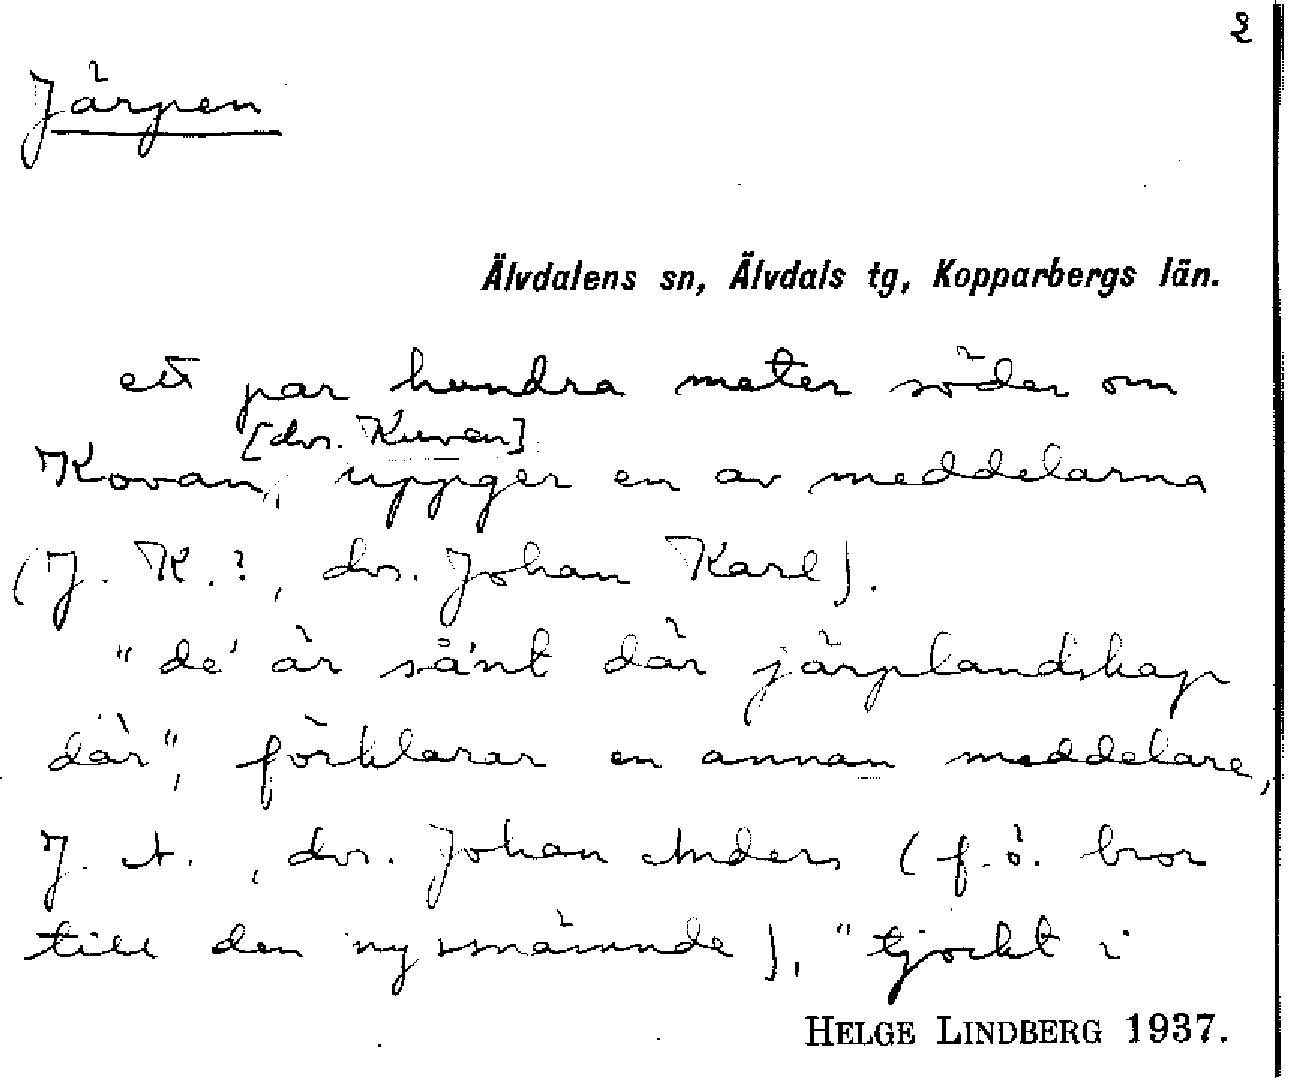 2
Järpen
Älvdalens sn, Älvdals tg, Kopparbergs län.
ett par hundra meter söder om
[dvs. Kuvan]
Kovan, uppger en av meddelarna
(J. K.?, dvs. Johan Karl).
"de' är sånt där järplandskap
där", förklarar en annan meddelare,
J. A., dvs. Johan Anders (f.ö. bror
till den nyssnämnde), "tjockt i
HELGE LINDBERG 1937.